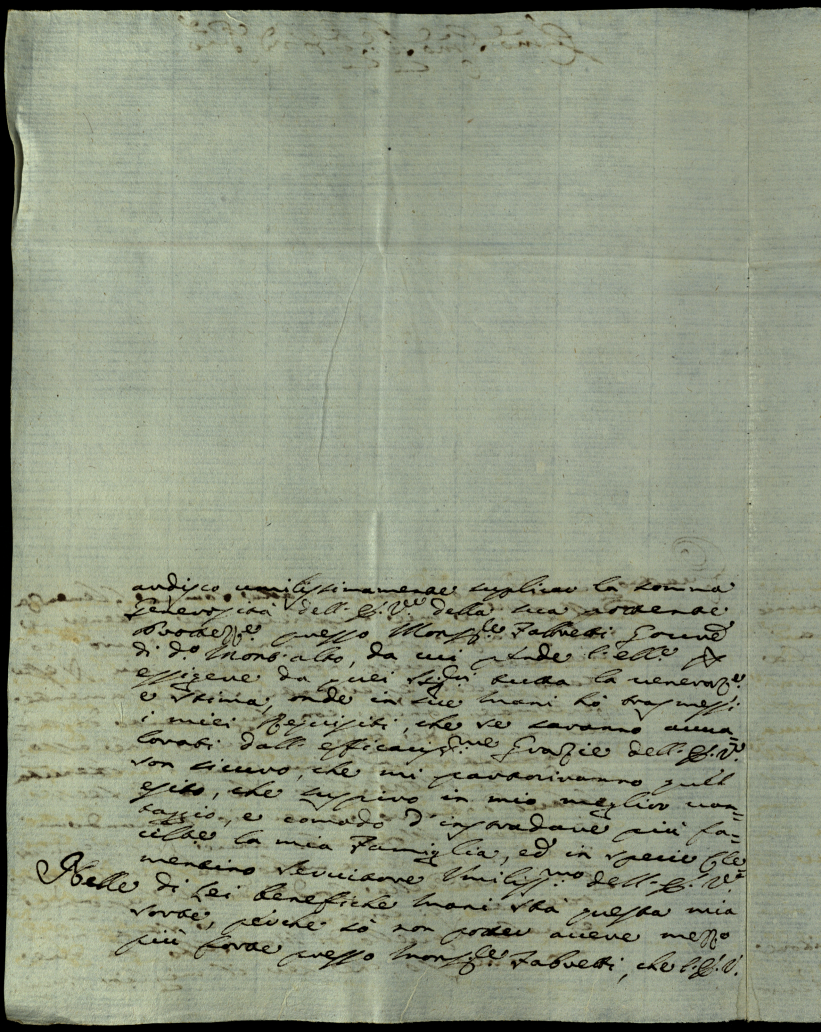 ardisco umilissimamente suplicar la somma
generosità dell'E. V. della sua potente
protezze. presso Monsr. Fabretti Govre.
di do. Montalto, da cui pende l'elle.
essigere da quei Sigri. tutta la veneraze.
e stima; onde in sue mani hò trasmessi
i miei Requisiti, che se saranno avva-
lorati dall'efficacissime Grazie dell'E. V.
son sicuro, che mi partoriranno quell'
esito, che sospiro in mio meglior van-
taggio, e comodo d'instradare più fa-
cilte. la mia Famiglia, ed in specie Cle-
mentino Servitore Umilissmo. dell'E. V.
Nelle di Lei benefiche mani stà questa mia
sorte, perche sò non poter avere mezzo
più forte presso Monsre. Fabretti, che l'E. V.